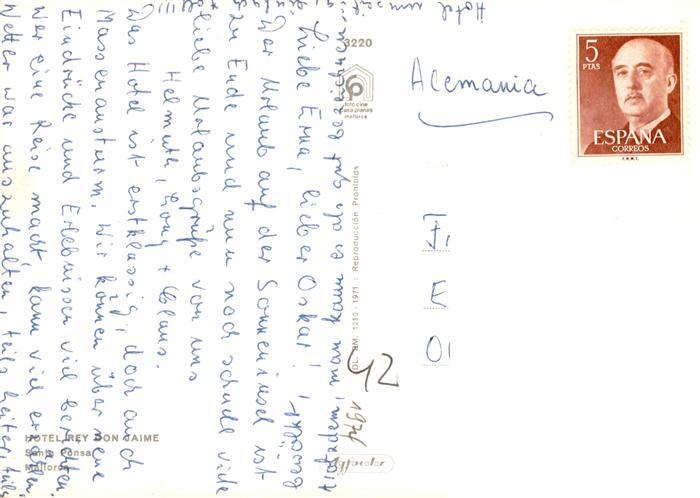 Hotel
Liebe Erna, lieber Oskar!
Der Urlaub auf der Sonneninsel ist
zu Ende und nun noch schnell viele
liebe Urlaubsgrüße von uns
Helmuth, + Claus.
Das Hotel ist erstklassig, doch auch
Massenansturm. Wir können über neue
Eindrücke und Erlebnisse viel berichten.
Wer eine Reise macht, kann viel erzählen.
Wetter war auszuhalten, teils heiter, teils
trotzdem, man kann es als gut bezeichnen
3220
foto cine
casa planas
mallorca
DL. BM. 1210 - 1971 : Reproducción Prohibida
42
1974
Agfacolor
HOTEL REY DON JAIME
Santa Ponsa
Mallorca
Alemania
5
PTAS
ESPAÑA
CORREOS
F.N.M.T.
E